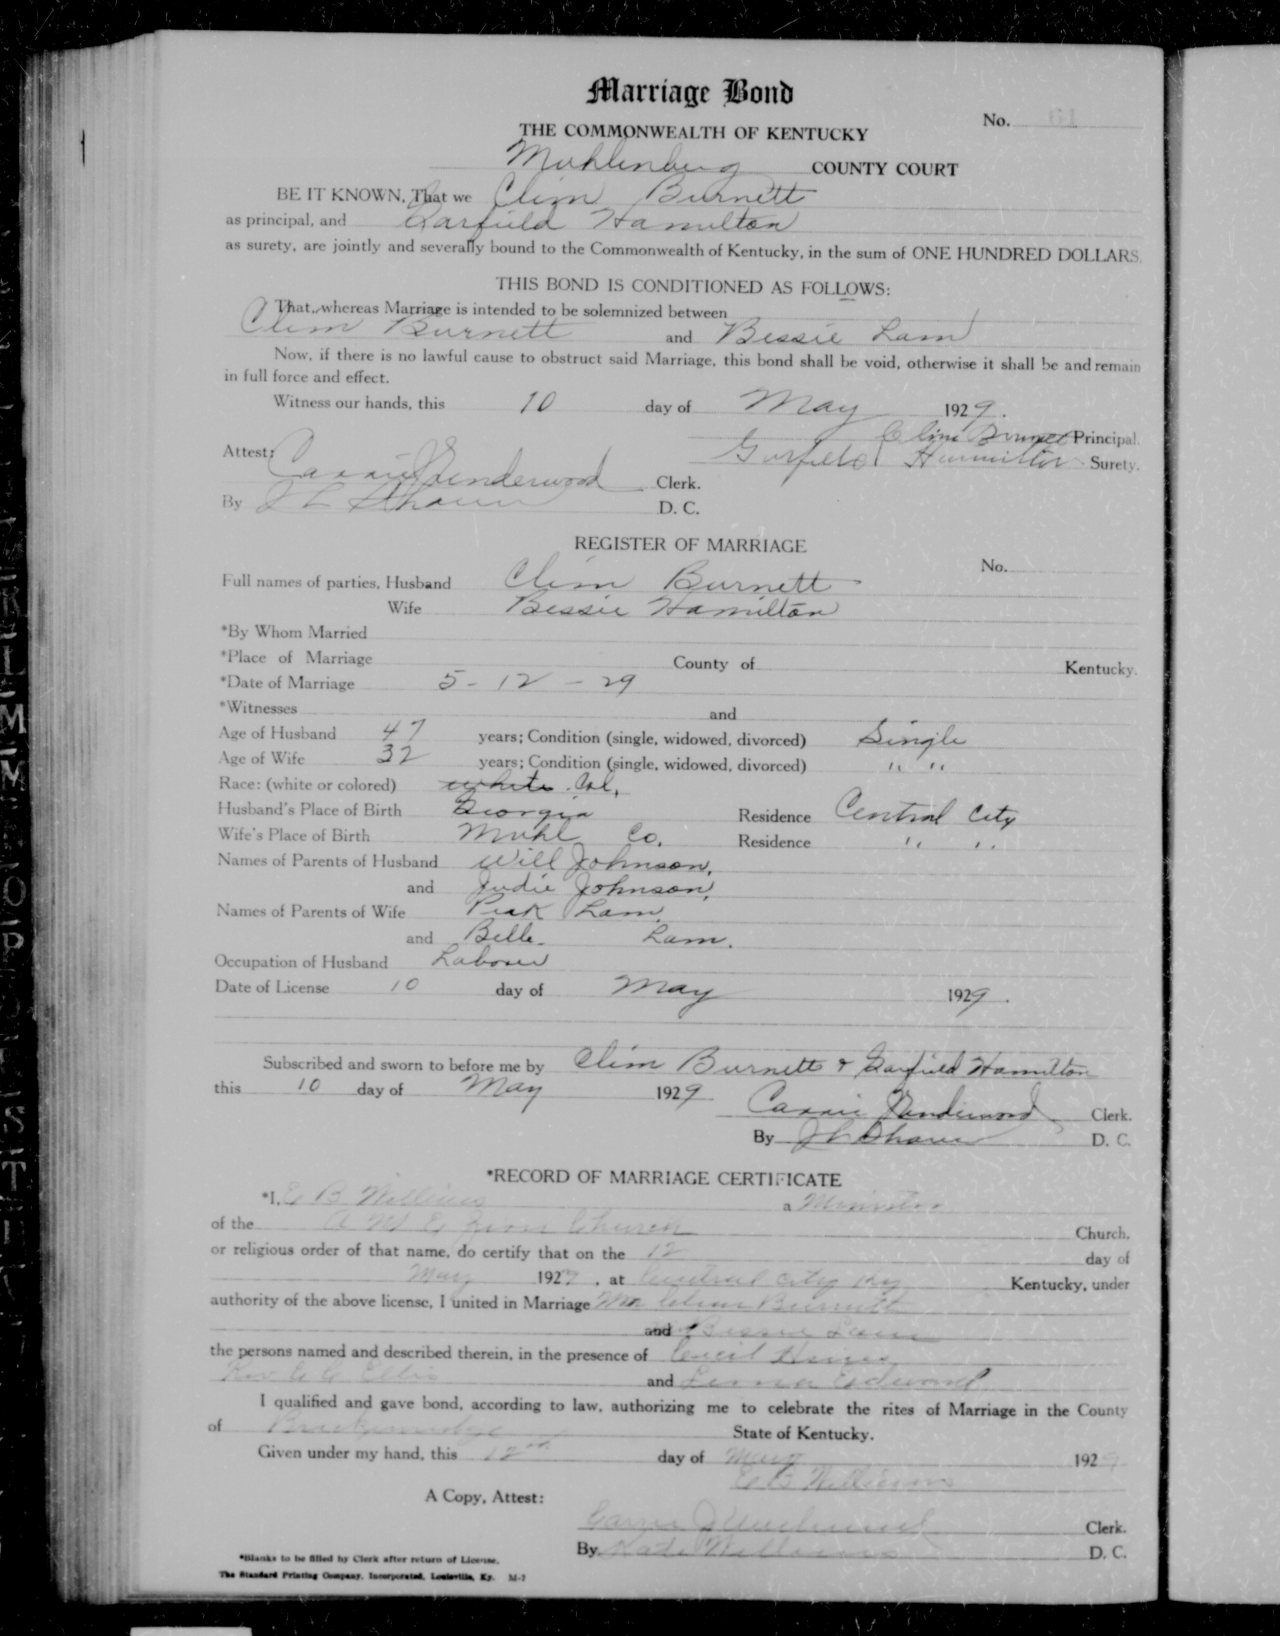 Marriage Bond
No. 61
THE COMMONWEALTH OF KENTUCKY
Muhlenberg COUNTY COURT
BE IT KNOWN, That we Clim Burnett
as principal, and Garfield Hamilton
as surety, are jointly and severally bound to the Commonwealth of Kentucky, in the sum of ONE HUNDRED DOLLARS.
THIS BOND IS CONDITIONED AS FOLLOWS:
That, whereas Marriage is intended to be solemnized between
Clim Burnett and Bessie Lam
Now, if there is no lawful cause to obstruct said Marriage, this bond shall be void, otherwise it shall be and remain
in full force and effect.
Witness our hands, this 10 day of May 1929.
Clim Burnett Principal.
Attest: Garfield Hamilton Surety.
Carrie Underwood Clerk.
By J L Shaver D. C.
REGISTER OF MARRIAGE
No.
Full names of parties, Husband Clim Burnett
Wife Bessie Hamilton
*By Whom Married
*Place of Marriage County of Kentucky.
*Date of Marriage 5 - 12 - 29
*Witnesses and
Age of Husband 47 years; Condition (single, widowed, divorced) Single
Age of Wife 32 years; Condition (single, widowed, divorced) " "
Race: (white or colored) white Col.
Husband's Place of Birth Georgia Residence Central City
Wife's Place of Birth Muhl Co. Residence " "
Names of Parents of Husband Will Johnson.
and Judie Johnson.
Names of Parents of Wife Peak Lam
and Belle Lam.
Occupation of Husband Laborer
Date of License 10 day of May 1929.
Subscribed and sworn to before me by Clim Burnett & Garfield Hamilton
this 10 day of May 1929
Carrie Underwood Clerk.
By J L Shaver D. C.
*RECORD OF MARRIAGE CERTIFICATE
*I, E B Williams a Minister
of the A M E Zion Church Church,
or religious order of that name, do certify that on the 12 day of
May 1929, at Central City Ky Kentucky, under
authority of the above license, I united in Marriage Mr Clim Burnett
and Bessie Lam
the persons named and described therein, in the presence of Cecil
Rev Ellis and
I qualified and gave bond, according to law, authorizing me to celebrate the rites of Marriage in the County
of Breckenridge State of Kentucky.
Given under my hand, this 12th day of May 1929
E B Williams
A Copy, Attest:
Carrie Underwood Clerk.
By Kate Williams D. C.
*Blanks to be filled by Clerk after return of License.
The Standard Printing Company, Incorporated, Louisville, Ky. M-7